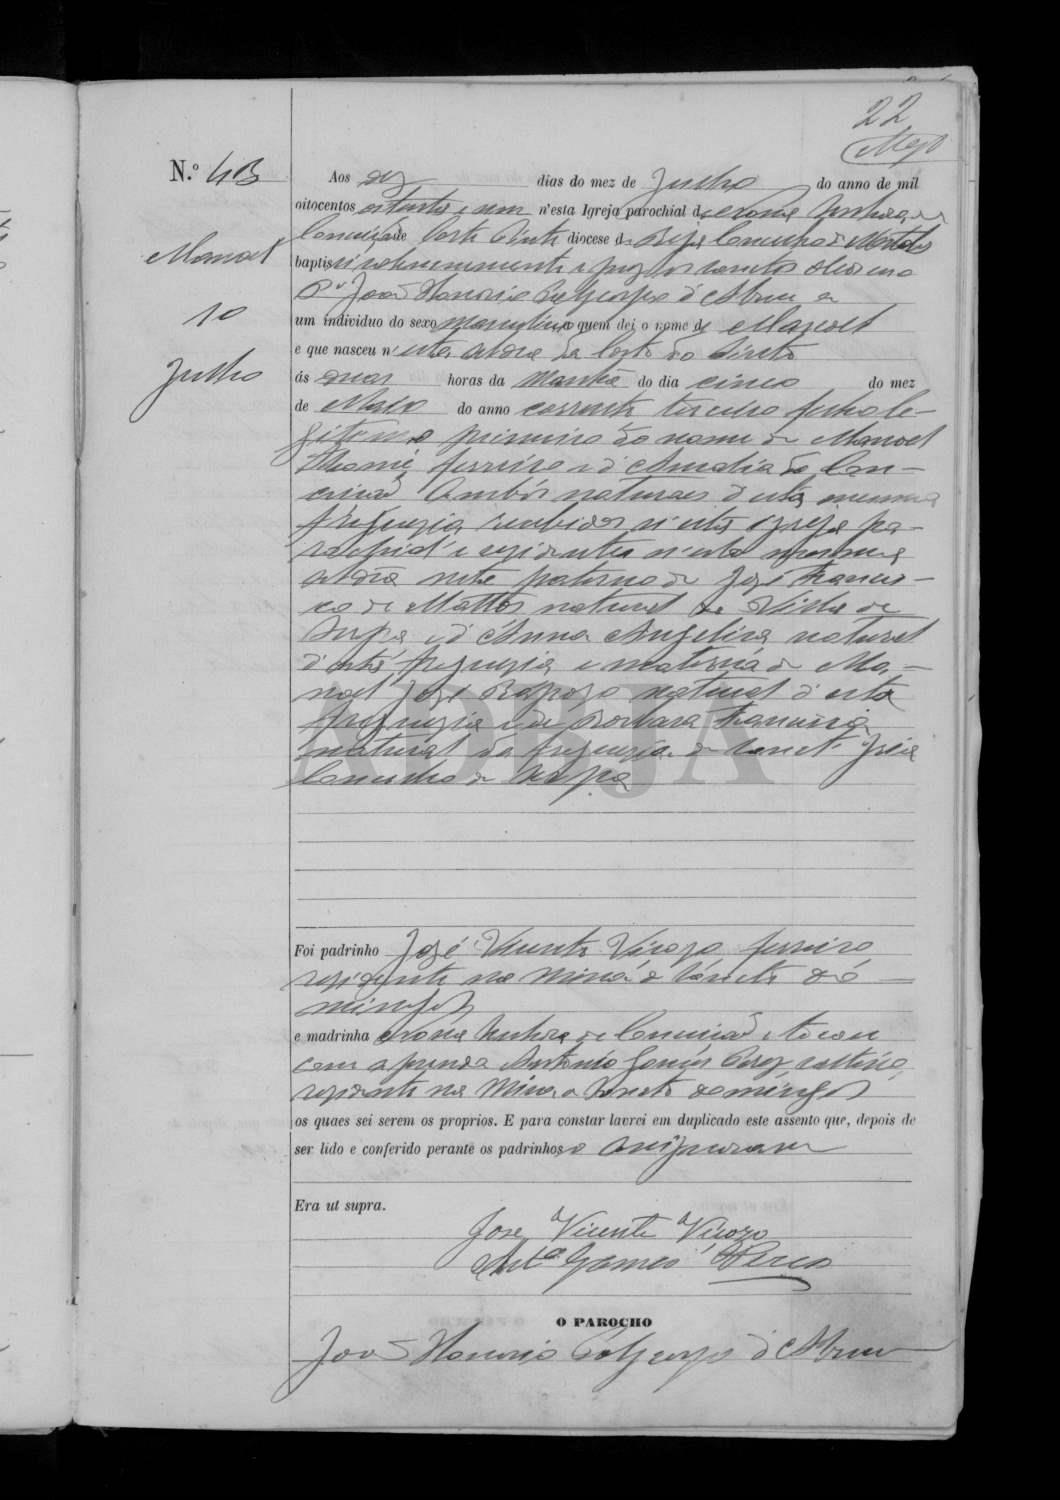 22
N.º 43
Manoel
10
Julho
Aos dez dias do mez de Julho do anno de mil
oitocentos oitenta e um n'esta Igreja parochial de Nossa Senhora da
Conceição de Corte Pinto diocese de Beja Concelho de Mertola
baptisei solemnemente e puz os santos oleos eu
P.e João Honorio Polycarpo d'Abreu a
um individuo do sexo masculino a quem dei o nome de Manoel
e que nasceu n'esta aldea da Corte do Pinto
ás duas horas da Manhã do dia cinco do mez
de Maio do anno corrente terceiro filho le-
gitimo e primeiro do nome de Manoel
Thomé ferreiro e d'Amalia da Con-
ceicão Ambos naturaes d'esta mesma
freguezia recebidos n'esta igreja pa-
rochial e rezidentes n'esta mesma
aldea neto paterno de José Francis-
co de Mattos natural de Villa de
Serpa e d'Anna Angelica natural
d'esta freguezia e materna de Ma-
noel José Raposo natural d'esta
freguezia e de Barbara Francisca
natural da freguezia de Sanct' Iria
Concelho de Serpa
ADBJA
Foi padrinho José Vicente Virozo ferreiro
rezidente na Mina de Sancto Do-
mingos
e madrinha Nossa Senhora da Conceicão e tocou
com a prenda Antonio Gomes Perez solteiro
rezidente na Mina de Sancto Domingos
os quaes sei serem os proprios. E para constar lavrei em duplicado este assento que, depois de
ser lido e conferido perante os padrinhos, o assignaram
Era ut supra.
Jose Vicente Virozo
Ant.o Gomes Peres
O PAROCHO
João Honorio Polycarpo d'Abreu